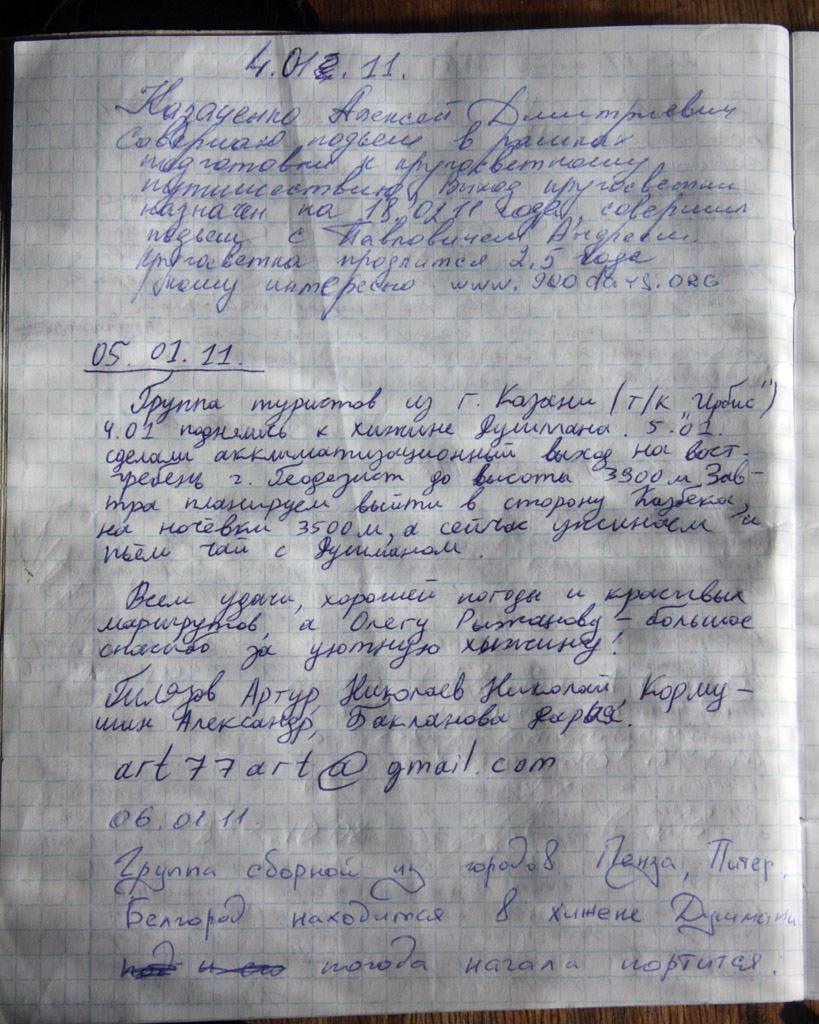 4.01.11.
Казаченко Алексей Дмитриевич
Совершаю подъем в рамках
подготовки к кругосветному
путишествию, выход кругосветки
назначен на 18.02.11 года, совершил
подъем с Павловичем Андреем.
Кругосветка продлится 2,5 года
кому интересно www.900days.org
05.01.11.
Группа туристов из г. Казани (т/к "Ирбис")
4.01 поднялись к хижине Душмана. 5.01.
сделали акклиматизационный выход на вост.
гребень г. Геодезист до высоты 3900 м. Зав-
тра планируем выйти в сторону Казбека,
на ночёвки 3500 м, а сейчас ужинаем и
пьём чай с Душманом.
Всем удачи, хорошей погоды и красивых
маршрутов, а Олегу Рыжанову - большое
спасибо за уютную хижину!
Гилязов Артур, Николаев Николай, Корму-
шин Александр, Бакланова Дарья.
art77art@gmail.com
06.01.11.
Группа сборной из городов Пенза, Питер,
Белгород находится в хижене Душмана
погода начала портится.